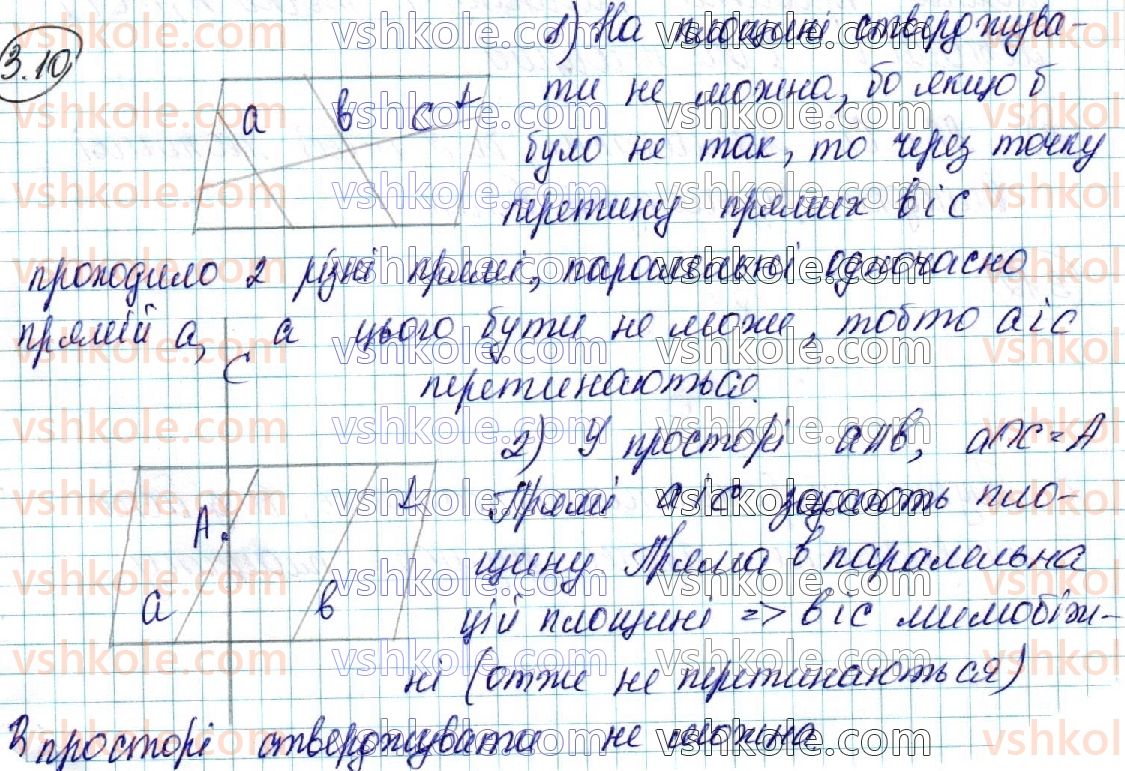 3.10
1) На площині стверджува-
ти не можна, бо якщо б
a в c α
було не так, то через точку
перетину прямих в і с
проходило 2 різні прямі, паралельні одночасно
прямій а, а цього бути не може, тобто а і с
перетинаються.
c
2) У просторі a||в, a∩c=A
Прямі а і с задають пло-
α
A
щину Пряма в паралельна
a в
цій площині => в і с мимобіж-
ні (отже не перетинаються)
В просторі стверджувати не можна
vshkole.com